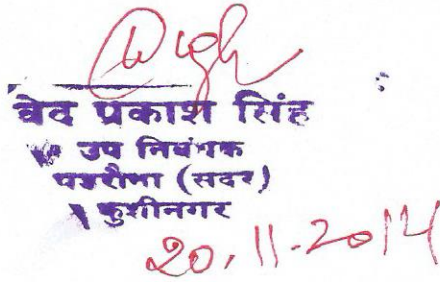 वेद प्रकाश सिंह
उप निबंधक
पडरौना (सदर)
कुशीनगर
20.11.2014